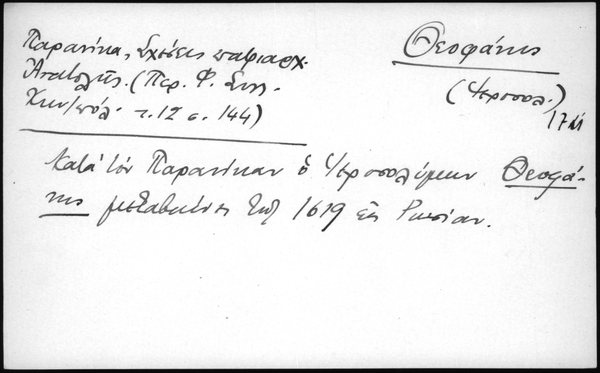 Παρανίκα, Σχέσεις πατριαρχ.
Ανατολῆς. (Περ. Φ. Συλ.
Κων/πόλ. τ. 12 σ. 144)
Θεοφάνης
(Ἱεροσολ.)
17
Κατὰ τὸν Παρανίκαν ὁ Ἱεροσολύμων Θεοφά-
νης μεταβαίνει τῷ 1619 εἰς Ρωσίαν.